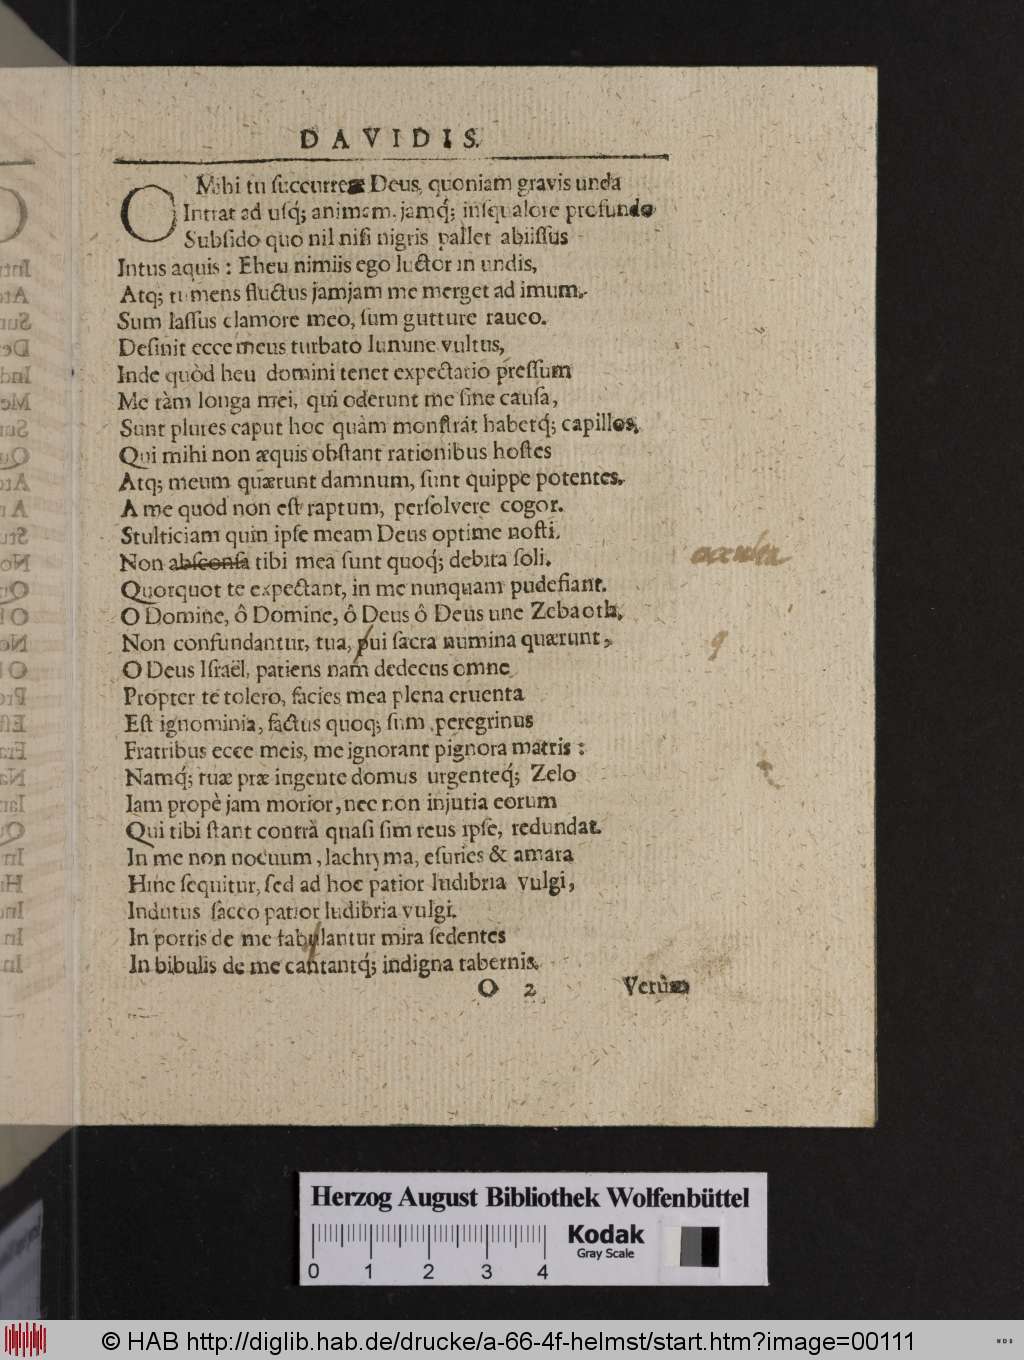 DAVIDIS.
O Mihi tu ſuccurre Deus, quoniam gravis unda
Intrat ad uſq; animam, jamq́; inſqualore profundo
Subſido quo nil niſi nigris pallet abiiſſus
Intus aquis : Eheu nimiis ego luctor in undis,
Atq; tumens fluctus jamjam me merget ad imum.
Sum laſſus clamore meo, ſum gutture rauco.
Definit ecce meus turbato lumine vultus,
Inde quòd heu domini tenet expectatio preſſum
Me tàm longa mei, qui oderunt me ſine cauſa,
Sunt plures caput hoc quàm monſtrát habetq́; capillos,
Qui mihi non æquis obſtant rationibus hoſtes
Atq; meum quærunt damnum, ſunt quippe potentes.
A me quod non eſt raptum, perſolvere cogor.
Stulticiam quin ipſe meam Deus optime noſti.
Non abſconſa tibi mea ſunt quoq́; debita ſoli.
Quotquot te expectant, in me nunquam pudefiant.
O Domine, ô Domine, ô Deus ô Deus une Zebaoth,
Non confundantur, tua, pui ſacra numina quærunt,
q
O Deus Iſraël, patiens nam dedecus omne
Propter te tolero, facies mea plena cruenta
Eſt ignominia, factus quoq; ſum peregrinus
Fratribus ecce meis, me ignorant pignora matris :
Namq́; tuæ præ ingente domus urgenteq́; Zelo
Iam propè jam morior, nec non injuria eorum
Qui tibi ſtant contrà quaſi ſim reus ipſe, redundat.
In me non nocuum, lachryma, eſuries & amara
Hinc ſequitur, ſed ad hoc patior ludibria vulgi,
Indutus ſacco patior ludibria vulgi.
In portis de me fabulantur mira ſedentes
In bibulis de me cantantq́; indigna tabernis.
O 2 Verùm
Herzog August Bibliothek Wolfenbüttel
0 1 2 3 4
Kodak
Gray Scale
© HAB http://diglib.hab.de/drucke/a-66-4f-helmst/start.htm?image=00111